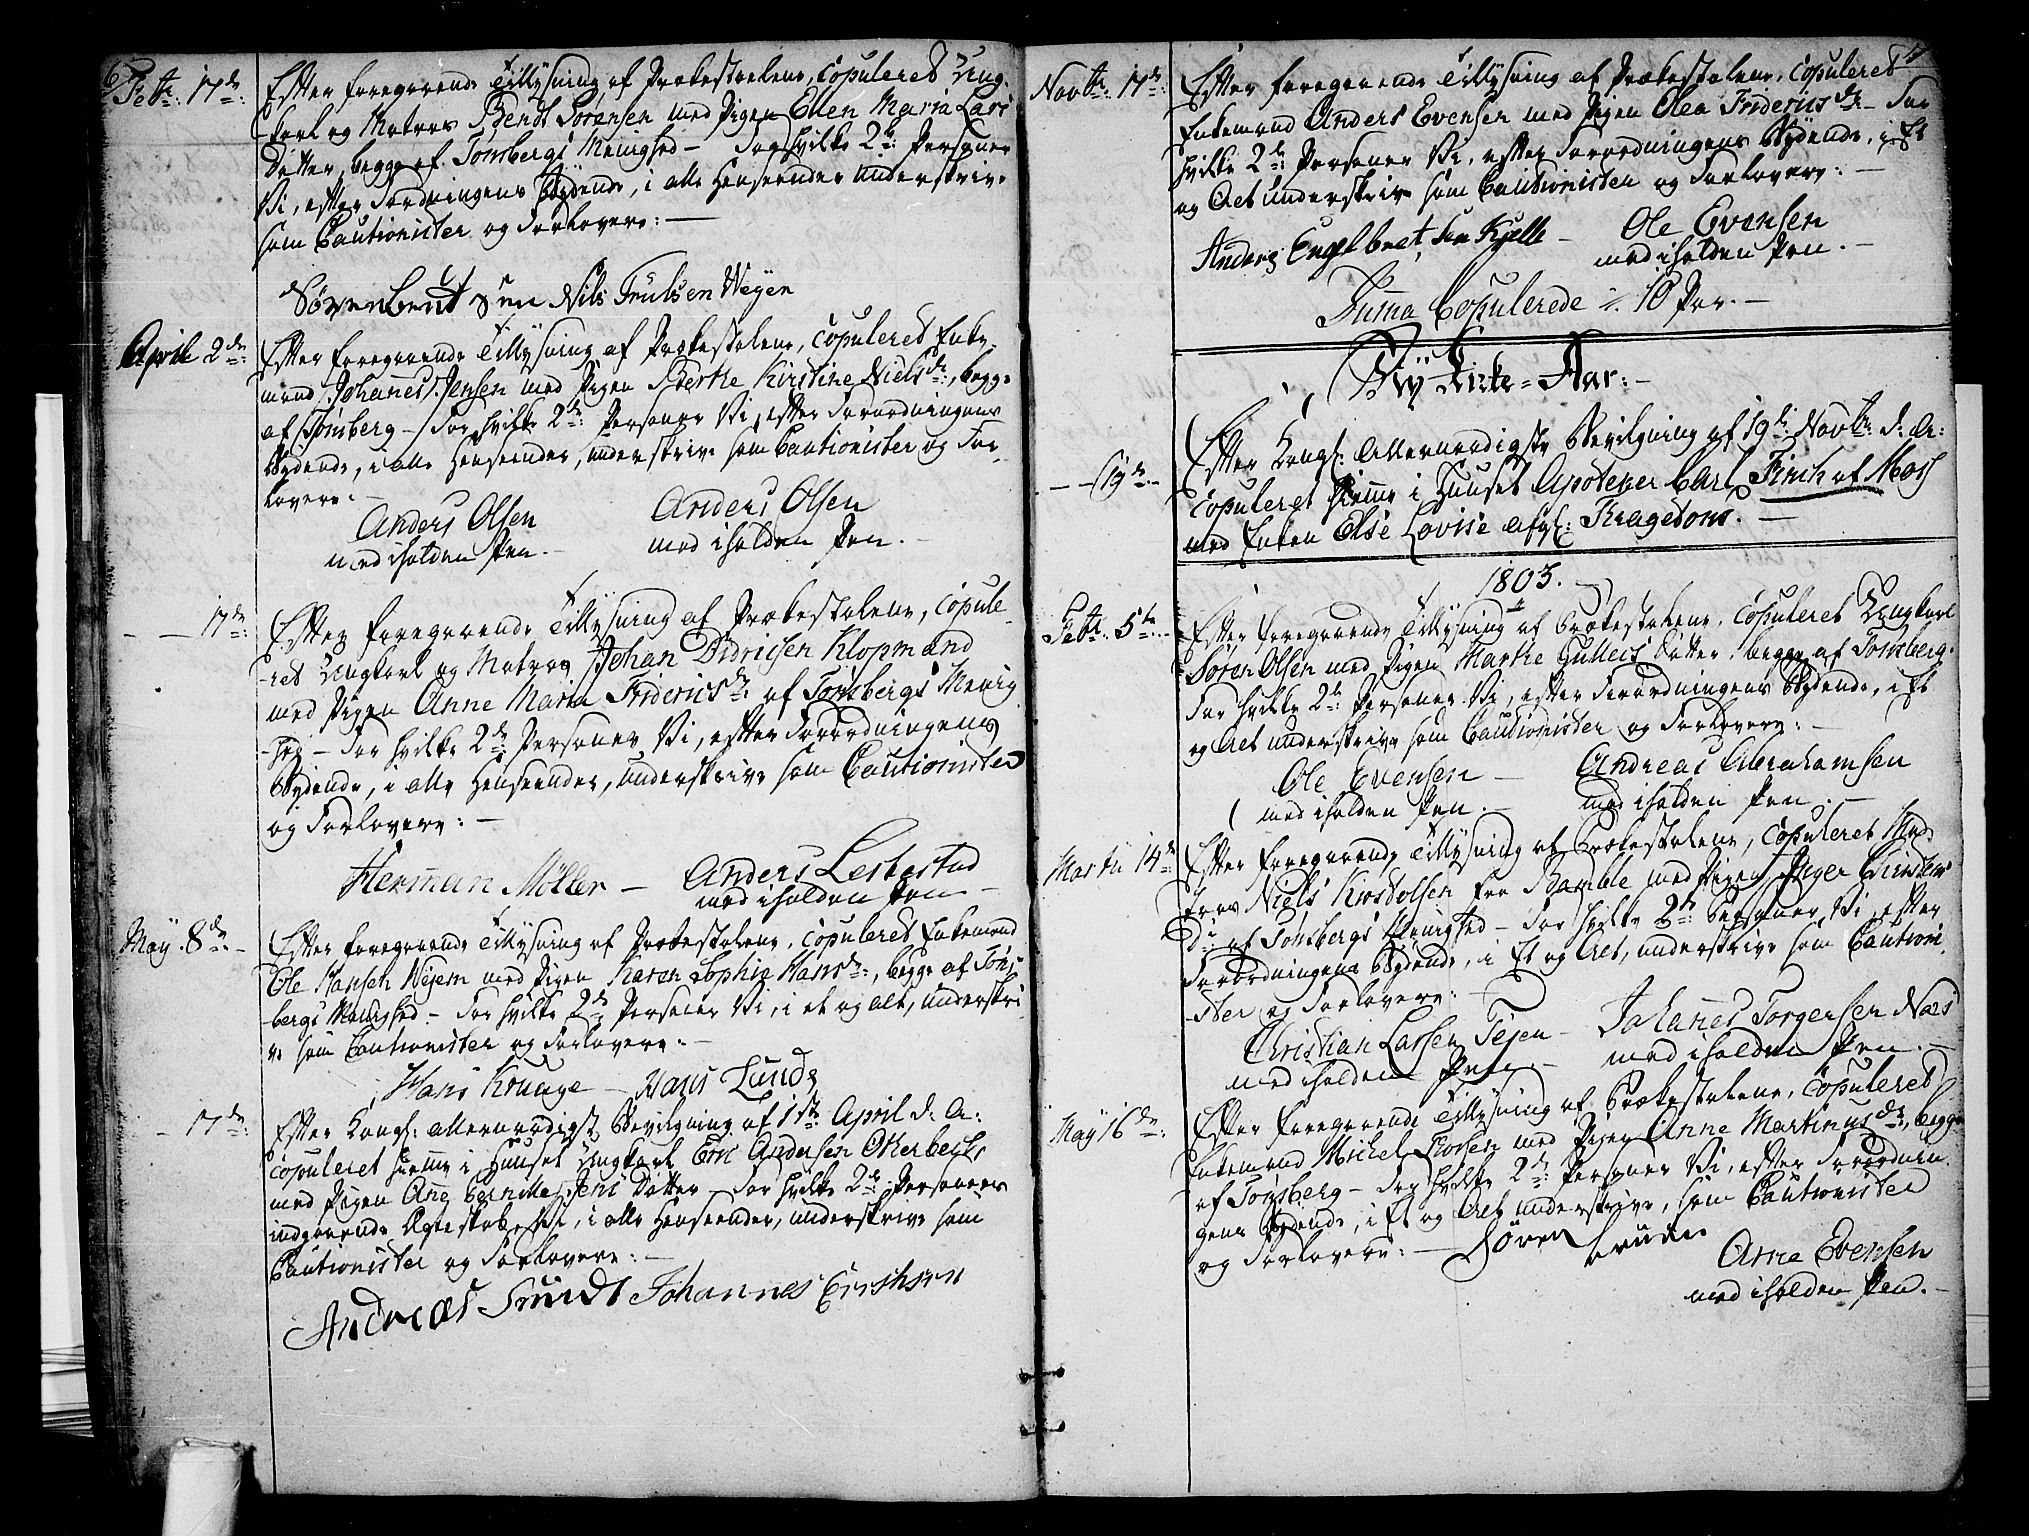 6
Febr: 17de: Efter foregaaende Tillysning af Prækestoelene, Copuleret Ung-
-karl og Matros Bendt Sørensen med Pigen Ellen Maria Lars
Datter, begge af Tønsbergs Menighed – For hvilke 2de Personer
Vi, efter Forordningens Bydende, i alle Henseender underskrive
som Cautionister og Forlovere: —
Søren Bent Sen Nils Trulsen Weyen
April 2de: Efter foregaaende Tillysning af Prækestolene, Copuleret Enke-
mand Johannes Jensen med Pigen Berthe Kirstine Nielsdr:, begge
af Tønsberg – For hvilke 2de: Personer Vi, efter Forordningens
Bydende, i alle Henseender, underskrive som Cautionister og For-
lovere: —
Anders Olsen Anders Olsen
med iholden Pen. — med iholden Pen. —
— — 17de: Efter foregaaende Tillysning af Prækestolene, Copule-
-ret Ungkarl og Matros Johan Didrichsen Klopmand
med Pigen Anne Maria Fridericsdr: af Tønsbergs Menig
-hed – For hvilke 2de Personer Vi, efter Forordningens
Bydende, i alle Henseender, underskrive som Cautionister
og Forlovere: —
Herman Möller — Anders Lestestad
med iholden Pen —
May 8de: – Efter foregaaende Tillysning af Prækestolene, Copuleret Enkemand
Ole Hansen Wejem med Pigen Karen Sophie Hansdr:, begge af Tøns-
-bergs Menighed – For hvilke 2de Personer Vi, i et og alt, underskri
ve som Cautionister og Forlovere: —
Hans Kruuge — Hans Lunds
— 17de: Efter Kongl: allernaadigst Bevilgning af 1ste April d: A:
Copuleret hiemme i Huuset Ungkarl Eric Andersen Okerbech,
med Pigen Ane Bernille Jens Datter – For hvilke 2de Personers
indgaaende Ægteskab Vi, i alle Henseender, underskrive som
Cautionister og Forlovere: —
Andreas Smidt Johannes Erichsen
7
Novbr: 17de: Efter foregaaende Tillysning af Prækestolene, Copuleret
Enkemand Anders Evensen med Pigen Olea Fridericsdr – For
hvilke 2de: Personer Vi, efter Forordningens Bydende, i Et
og Alt underskrive som Cautionister og Forlovere: —
Anders Engelbret, sen Kjelle – Ole Evensen
med iholden Pen. —
Summa Copulerede /: 10 Par. —
Ny Kirke-Aar: —
— — 19de: Efter Kongl: Allernaadigste Bevilgning af 19de Novbr: d: A:
Copuleret hiemme i Huuset Apoteker Carl Finch af Moss
med Enken Else Lovise afgl: Kragetons. —
1803.
Febr: 5te: Efter foregaaende Tillysning af Prækestolene, Copuleret Ungkarl
Søren Olsen med Pigen Marthe Gulleics Datter, begge af Tønsberg.
For hvilke 2de Personer Vi, efter Forordningens Bydende, i Et
og Alt underskrive som Cautionister og Forlovere: —
Ole Evensen — Andreas Abrahamsen
med iholden Pen. — med iholden Pen. —
Martii 14de Efter foregaaende Tillysning af Prækestolene, Copuleret
Niels Kiostolsen fra Bamble med Pigen Inger Christens
Dr: af Tønsbergs Menighed – For hvilke 2de Personer Vi, efter
Forordningens Bydende, i Et og Alt, underskrive som Cautioni-
-ster og Forlovere: —
Christian Larsen Tejen — Johanes Torgersen Næs
med iholden Pen. — med iholden Pen. —
May 16de: Efter foregaaende Tillysning af Prækestolene, Copuleret
Enkemand Michel med Pigen Anne Martinusdr:, begge
af Tønsberg – For hvilke 2de Personer Vi, efter Forordnin-
gens Bydende, i Et og Alt underskrive, som Cautionister
og Forlovere: — Søren
Arne Evensen
med iholden Pen. —